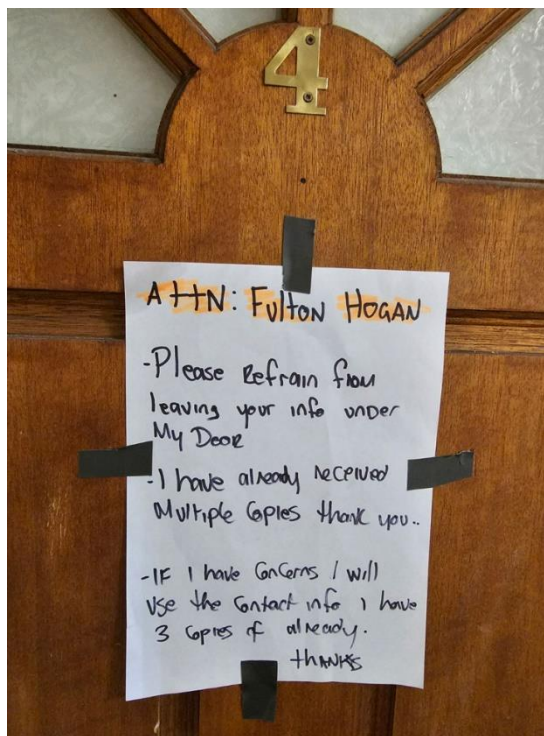 4
ATTN: Fulton Hogan
-Please Refrain from
leaving your info under
My Door
-I have already received
Multiple Copies thank you..
-IF I have Concerns I will
use the Contact info I have
3 Copies of already.
thanks